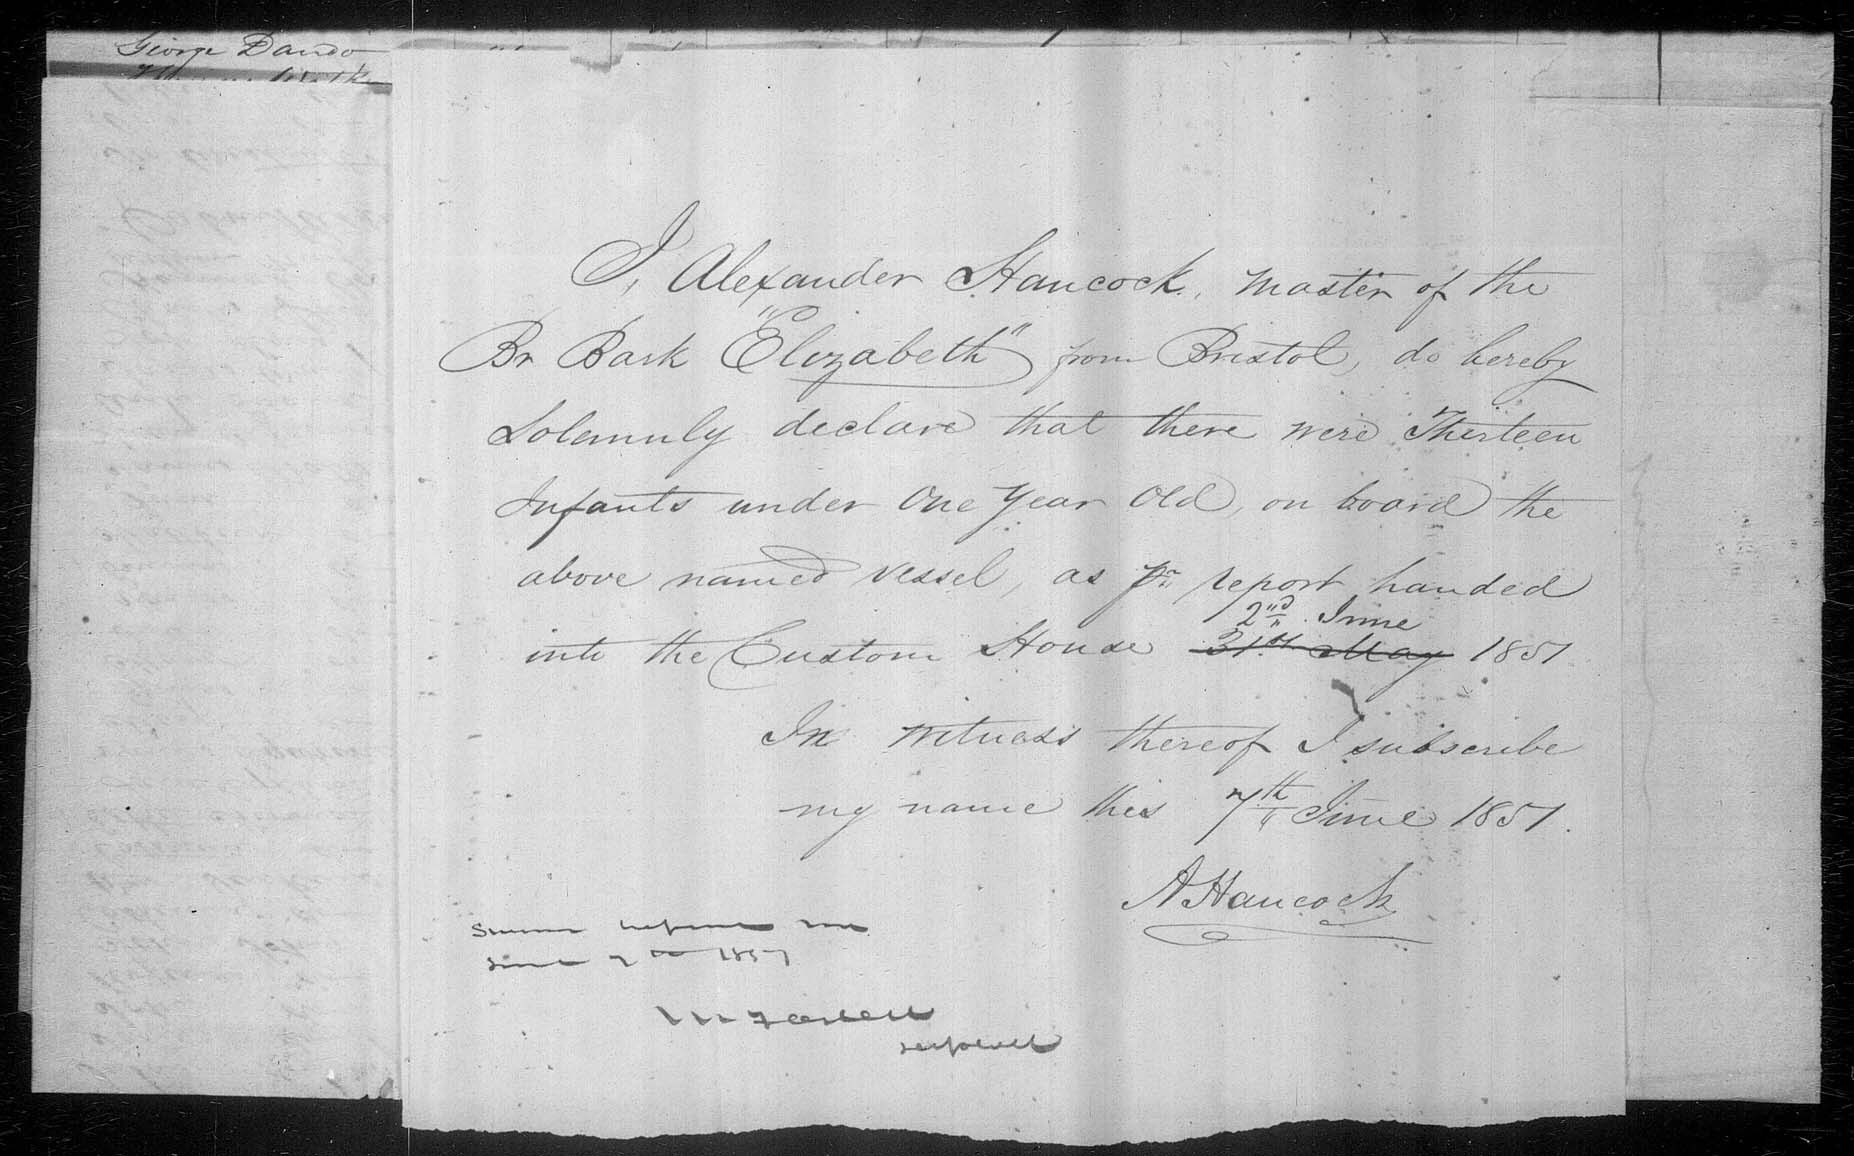 George Dando
I, Alexander Hancock, master of the
Br Bark "Elizabeth" from Bristol, do hereby
Solemnly declare that there were Thirteen
Infants under One Year Old, on board the
above named vessel, as pr report handed
2nd June
into the Custom House 31st May 1851
In witness thereof I subscribe
my name this 7th June 1851.
A Hancock
Sworn before me
June 7th 1851